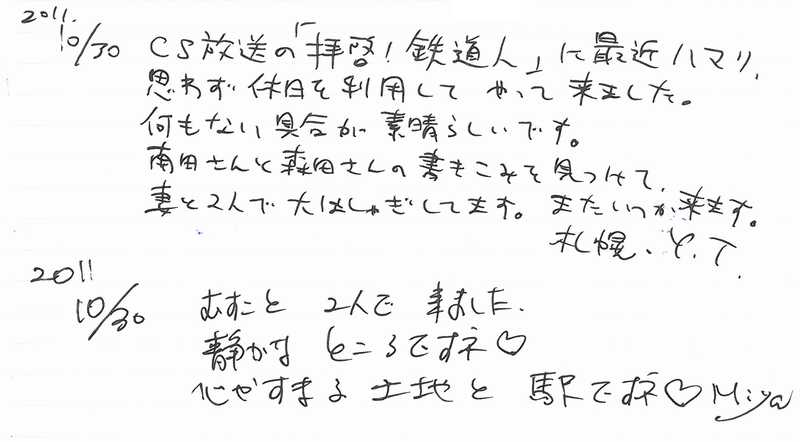 2011.
10/30 CS放送の「拝啓!鉄道人」に最近ハマリ、
思わず休日を利用してやって来ました。
何もない具合が素晴らしいです。
南田さんと森田さんの書きこみを見つけて、
妻と2人で大はしゃぎしてます。またいつか来ます。
札幌、Y.T.
2011
10/30 むすこと 2人で 来ました.
静かな ところですネ♡
心やすまる 土地と 駅ですネ♡ Miya